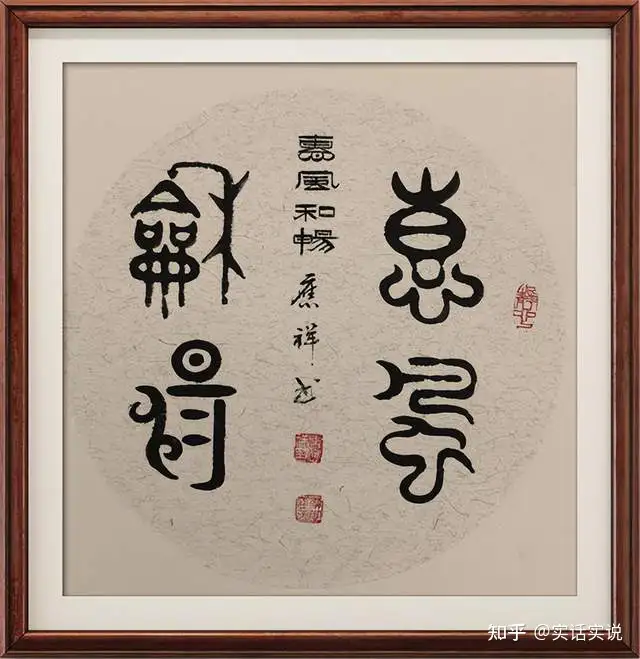 惠風
龢暢
惠風和暢
應祥書
知乎 @实话实说